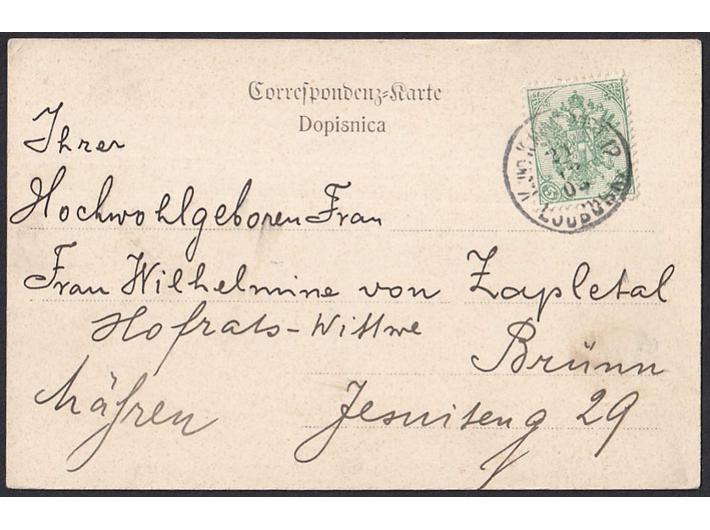 Correspondenz-Karte
Dopisnica
Ihrer
Hochwohlgeboren Frau
Frau Wilhelmine von Zapletal
Hofrats-Wittwe
Brünn
Mähren Jesuiteng 29
5
LJUBUŠKI